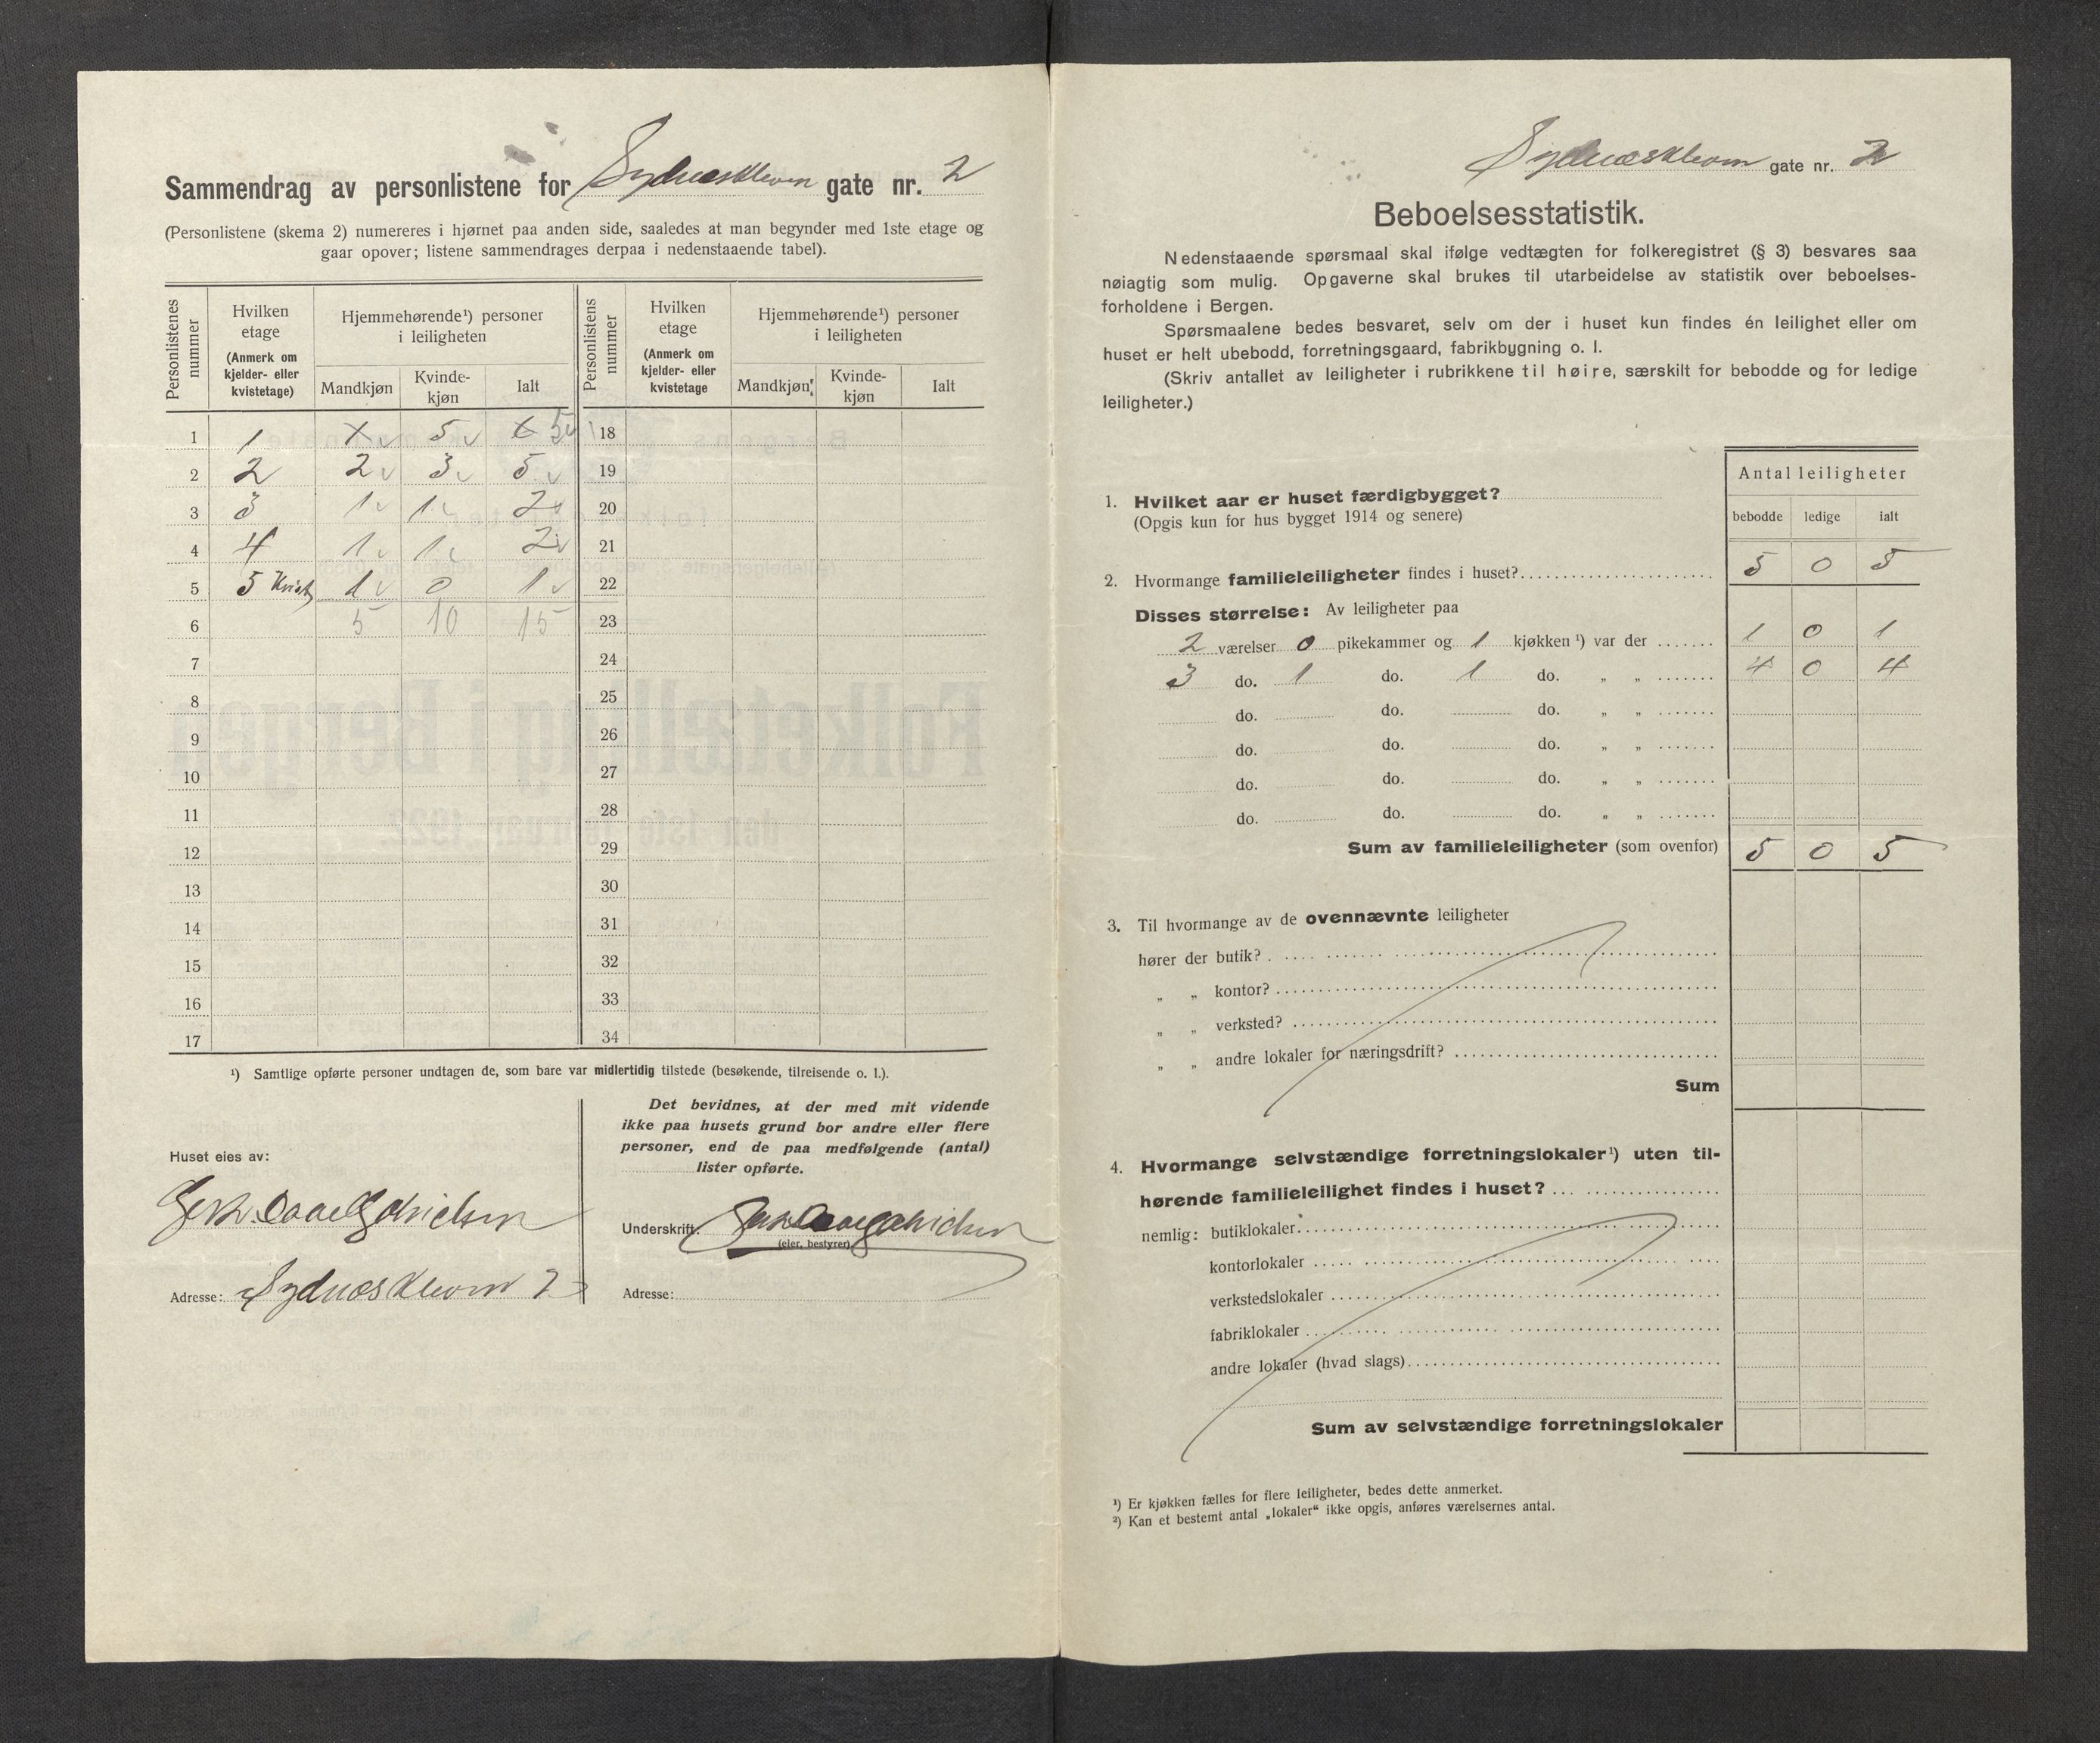 Sammendrag av personlistene for Sydneskleven gate nr. 2
(Personlistene (skema 2) numereres i hjørnet paa anden side, saaledes at man begynder med 1ste etage og
gaar opover; listene sammendrages derpaa i nedenstaaende tabel).
Personlistenes nummer
Hvilken etage (Anmerk om kjelder- eller kvistetage)
Hjemmehørende¹) personer i leiligheten
Mandkjøn Kvinde-kjøn Ialt
Personlistens nummer
Hvilken etage (Anmerk om kjelder- eller kvistetage
Hjemmehørende¹) personer i leiligheten
Mandkjøn Kvinde-kjøn Ialt
1 1 1 5 6 5 18
2 2 2 3 5 19
3 3 1 1 2 20
4 4 1 1 2 21
5 5 Kvist 1 0 1 22
6 5 10 15 23
7 24
8 25
9 26
10 27
11 28
12 29
13 30
14 31
15 32
16 33
17 34
¹) Samtlige opførte personer undtagen de, som bare var midlertidig tilstede (besøkende, tilreisende o. l.).
Huset eies av:
Adresse: Sydneskleven 2
Det bevidnes, at der med mit vidende
ikke paa husets grund bor andre eller flere
personer, end de paa medfølgende (antal)
lister opførte.
Underskrift:
(eier, bestyrer)
Adresse:
Sydneskleven gate nr. 2
Beboelsesstatistik.
Nedenstaaende spørsmaal skal ifølge vedtægten for folkeregistret (§ 3) besvares saa
nøiagtig som mulig. Opgaverne skal brukes til utarbeidelse av statistik over beboelses-
forholdene i Bergen.
Spørsmaalene bedes besvaret, selv om der i huset kun findes én leilighet eller om
huset er helt ubebodd, forretningsgaard, fabrikbygning o. l.
(Skriv antallet av leiligheter i rubrikkene til høire, særskilt for bebodde og for ledige
leiligheter.)
Antal leiligheter
bebodde ledige ialt
1. Hvilket aar er huset færdigbygget?
(Opgis kun for hus bygget 1914 og senere)
2. Hvormange familieleiligheter findes i huset? 5 0 5
Disses størrelse: Av leiligheter paa
2 værelser 0 pikekammer og 1 kjøkken ¹) var der 1 0 1
3 do. 1 do. 1 do. „ „ 4 0 4
do. do. do. „ „
do. do. do. „ „
do. do. do. „ „
do. do. do. „ „
Sum av familieleiligheter (som ovenfor) 5 0 5
3. Til hvormange av de ovennævnte leiligheter
hører der butik?
„ „ kontor?
„ „ verksted?
„ „ andre lokaler for næringsdrift?
Sum
4. Hvormange selvstændige forretningslokaler¹) uten til-
hørende familieleilighet findes i huset?
nemlig: butiklokaler
kontorlokaler
verkstedslokaler
fabriklokaler
andre lokaler (hvad slags)
Sum av selvstændige forretningslokaler
¹) Er kjøkken fælles for flere leiligheter, bedes dette anmerket.
²) Kan et bestemt antal „lokaler“ ikke opgis, anføres værelsernes antal.